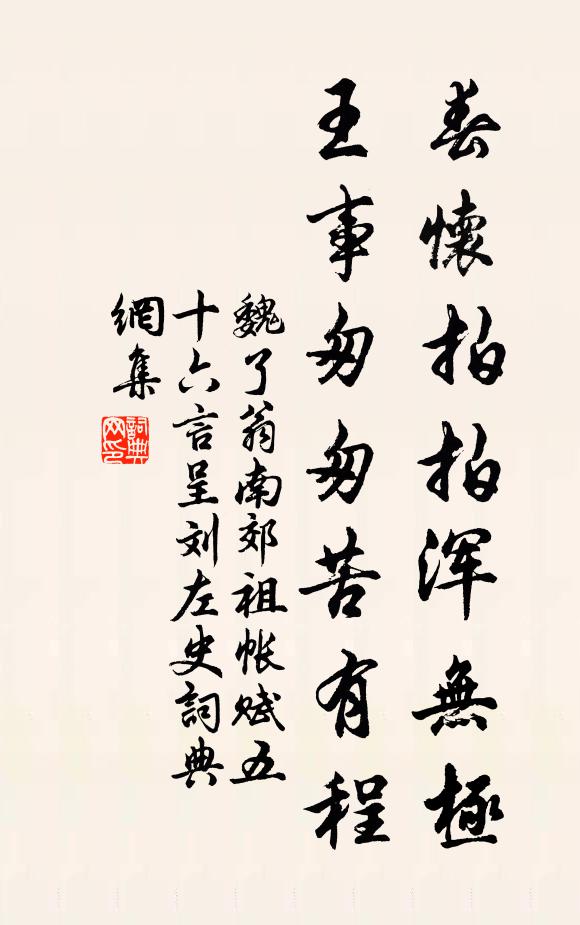 春懷拍拍浑無極
王事匆匆苦有程
魏了翁南郊祖帐赋五
十六言呈刘左史詞典
網集
詞典
网印